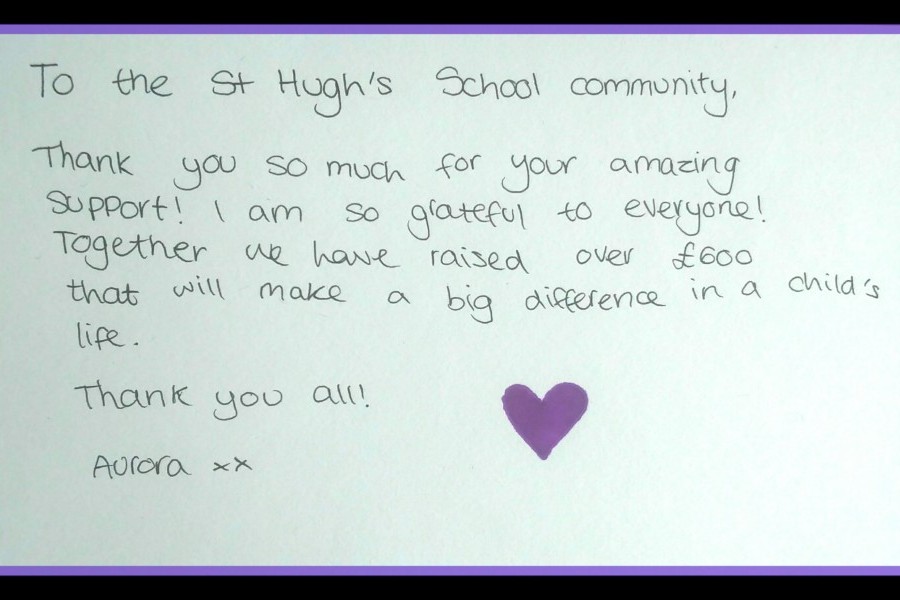 To the St Hugh's School community,
Thank you so much for your amazing
support! I am so grateful to everyone!
Together we have raised over £600
that will make a big difference in a child's
life.
Thank you all!
Aurora xx